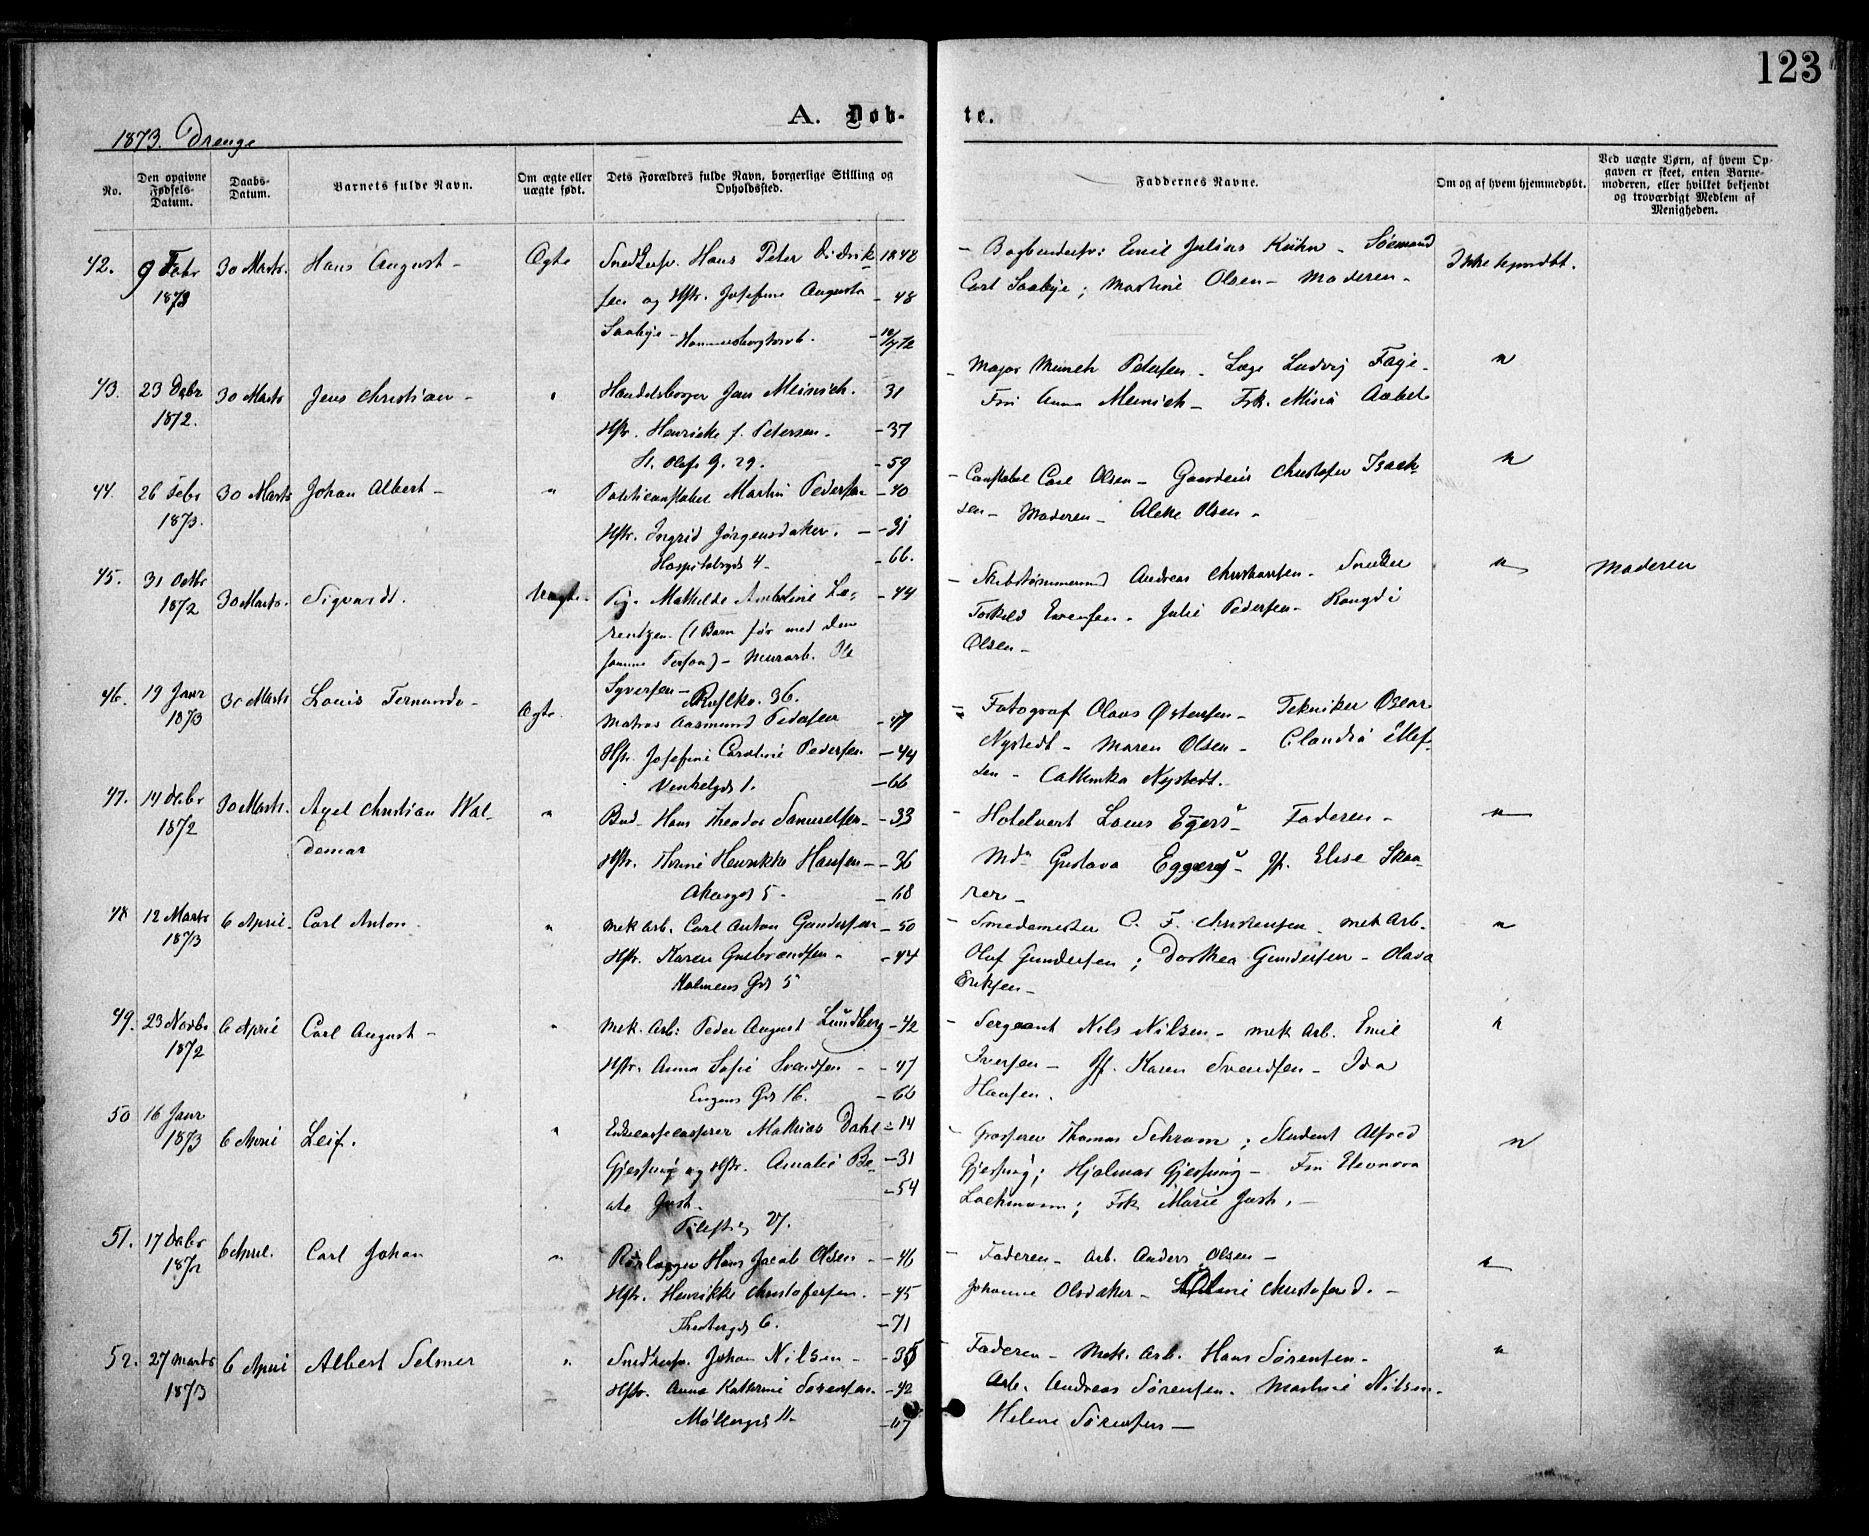 123
A. Døb-te.
1873. Drenge
No.
Den opgivne Fødsels-Datum.
Daabs-Datum.
Barnets fulde Navn.
Om ægte eller uægte født.
Dets Forældres fulde Navn, borgerlige Stilling og Opholdssted.
Faddernes Navne.
Om og af hvem hjemmedøbt.
Ved uægte Børn, af hvem Opgaven er skeet, enten Barnemoderen, eller hvilket bekjendt og troværdigt Medlem af Menigheden.
42. 9 Febr 30 Marts. Hans August - Ægte Hans Peter Didrik- 1848 - Emil Julius Kühn - Sømand
1873 sen og Hstr. Josefine Augusta - 48 Carl Saabye; Martine Olsen - Moderen -
Saabye -
43. 23 Debr 30 Marts Jens Christian - " Handelsborger Jens Meinich. 31 - Major Munch Petersen - Læge Ludvig Faye - "
1872. Hstr. Henrikke f. Petersen. - 37 Fru Anna Meinich - Frk. Mina
St. Olafs G. 29. - 59
44. 26 Febr 30 Marts Johan Albert - " Politiconstabel Martin Pedersen - 40 - Constabel Carl Olsen - Christofer Isak- "
1873. Hstr. Ingrid Jørgensdaker. - 31 sen - Moderen - Olsen -
Hospitalsgd 4 - - 66.
45. 31 Octbr 30 Marts. Sigvardt. Uægte - Pige Mathilde Lo- - 44 - Skibstømmermand Andreas Christiansen - Snedker " Moderen
1872 rentzen. (1 Barn før med den Torkild Evensen. Julie Pedersen - Rangdi
samme Person) - Murarb. Ole Olsen -
Syversen - 36.
46. 19 Janr 30 Marts Louis Fernando - Ægte. Matros Aasmund Pedersen - 47 - Fotograf Olaus Østensen - Tekniker Oscar
1873 Hstr. Josefine Caroline Pedersen - 44 Nystedt - Maren Olsen - Claudia Ellef-
Vinkelgd 1. - 66 sen - Cathinka Nystedt.
47. 14 Debr 30 Marts. Axel Christian Wal- " Bud - Hans Theodor Samuelsen - - 33 - Hotelvert Louis Egers - Faderen - "
1872 demar Hstr. Henrikke Hansen - - 36 Gustava Eggers - Jf. Elise Skaa-
Akersgd 5 - - 68 rer -
48 12 Marts 6 April. Carl Anton. " Mek Arb. Carl Anton Gundersen - 50 - Smedemester C. F. Christensen - Mek Arb. "
1873 Hstr. Karen Gulbrandsen - - 44 Oluf Gundersen; Dorthea Gundersen - Olava
Holmens Gd 5 Eriksen -
49. 23 Novbr 6 April Carl August - " Mek. Arb: Peder August Lundberg - 42 - Sergeant Nils Nilsen - Mek Arb. Emil "
1872 Hstr. Anna Sofie Svendsen - - 47 Iversen - Jf. Karen Svendsen - Ida
Gd 16. - 66 Hansen.
50 16 Janr 6 April Leif. " Mathias Dahl - 14 - Grosserer Thomas Schram; Student Alfred "
1873 Gjersing og Hstr. Amalie Be- - 31 Gjersing; Hjalmar Gjersing - Fru Eleonora
ate Just - - 54 Lochmann; Frk Marie Just. -
27.
51. 17 Debr 6 April. Carl Johan " Rørlægger Hans Jacob Olsen - - 46 - Faderen - Arb. Anders Olsen - "
1872 Hstr. Henrikke Christofersen. - 45 Johanne Olsdaker -
6. - 71
52. 27 Marts 6 April Albert Selmer " Snedkersv. Johan Nilsen - - 35 - Faderen - Mek. Arb. Hans Sørensen - "
1873 Hstr. Anna Katrine Sørensen - 42 Arb. Andreas Sørensen. Martine Nilsen -
Møllergd 11 - Helene Sørensen -